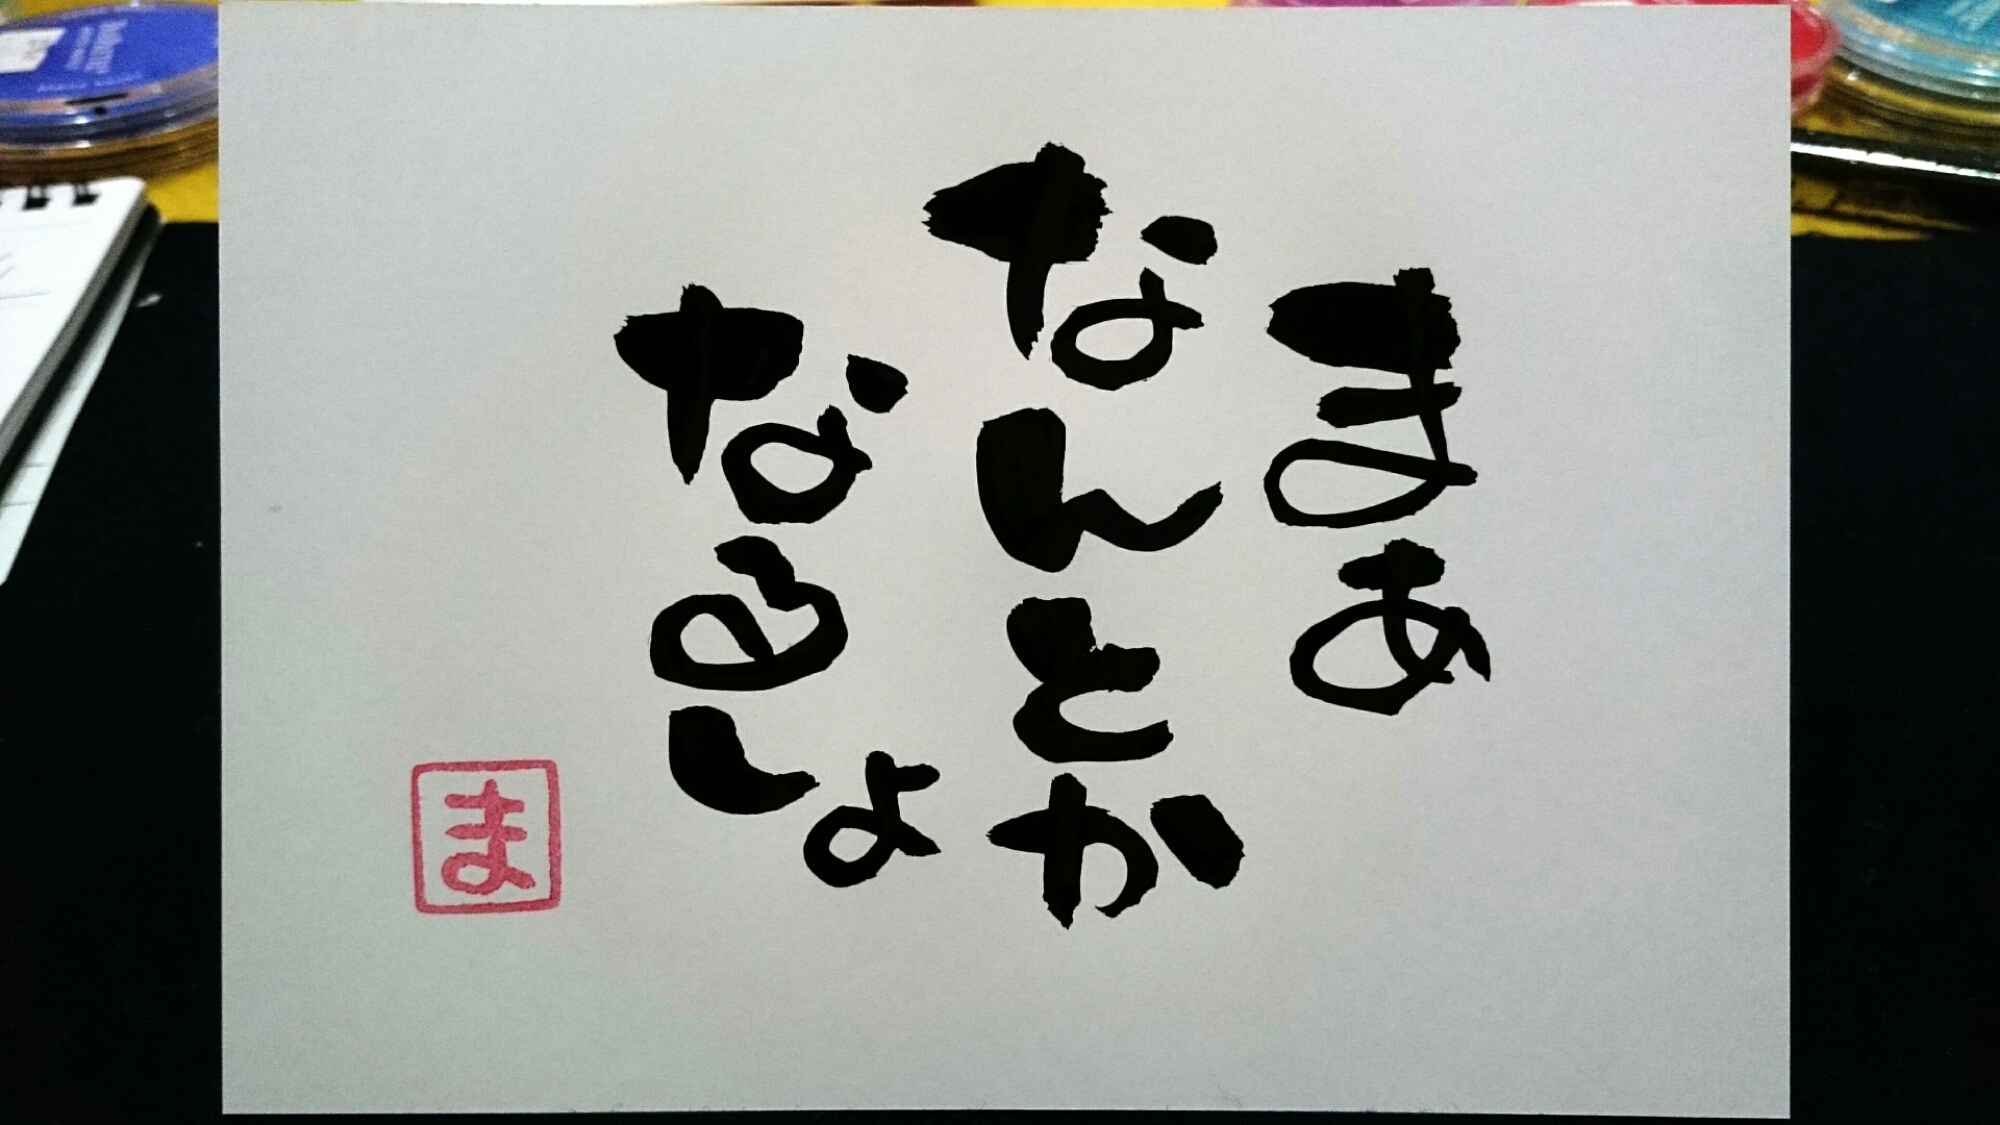 まあ
なんとか
なるしょ
ま